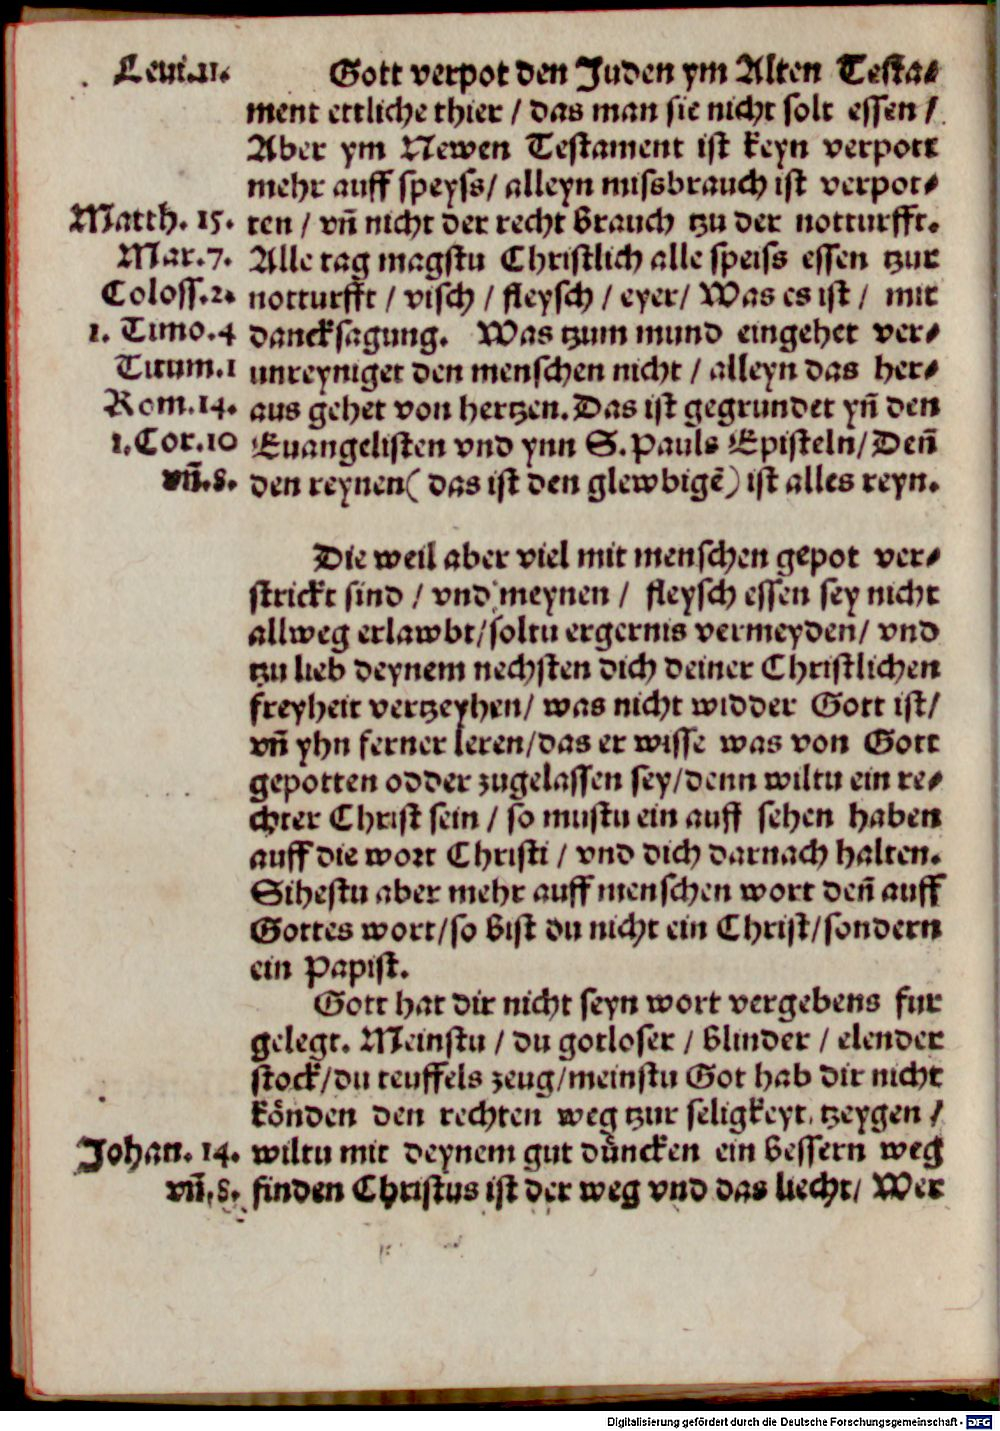 Leui.11. Gott verpot den Juden ym Alten Testa⸗
ment ettliche thier / das man sie nicht solt essen /
Aber ym Newen Testament ist keyn verpott
mehr auff speyss/ alleyn missbrauch ist verpot⸗
Matth. 15. ten / vn̄ nicht der recht brauch tzu der notturfft.
Mar.7. Alle tag magstu Christlich alle speiss essen tzur
Coloss.2. notturfft / visch / fleysch / eyer/ Was es ist / mit
1. Timo.4 dancksagung. Was tzum mund eingehet ver⸗
Titum.1 unreyniget den menschen nicht / alleyn das her⸗
Rom.14. aus gehet von hertzen. Das ist gegrundet yn̄ den
1.Cor.10 Euangelisten vnd ynn S. Pauls Episteln/ Den̄
vn̄.8. den reynen( das ist den glewbigē) ist alles reyn.
Die weil aber viel mit menschen gepot ver⸗
strickt sind / vnd meynen / fleysch essen sey nicht
allweg erlawbt/soltu ergernis vermeyden/ vnd
tzu lieb deynem nechsten dich deiner Christlichen
freyheit vertzeyhen/ was nicht widder Gott ist/
vn̄ yhn ferner leren/das er wisse was von Gott
gepotten odder zugelassen sey/denn wiltu ein re⸗
chter Christ sein / so mustu ein auff sehen haben
auff die wort Christi / vnd dich darnach halten.
Sihestu aber mehr auff menschen wort den̄ auff
Gottes wort/so bist du nicht ein Christ/sondern
ein Papist.
Gott hat dir nicht seyn wort vergebens fur
gelegt. Meinstu / du gotloser / blinder / elender
stock/du teuffels zeug/meinstu Got hab dir nicht
koͤnden den rechten weg tzur seligkeyt tzeygen /
Johan. 14. wiltu mit deynem gut duͤncken ein bessern weg
vn̄.8. finden Christus ist der weg vnd das liecht/ Wer
Digitalisierung gefördert durch die Deutsche Forschungsgemeinschaft - DFG